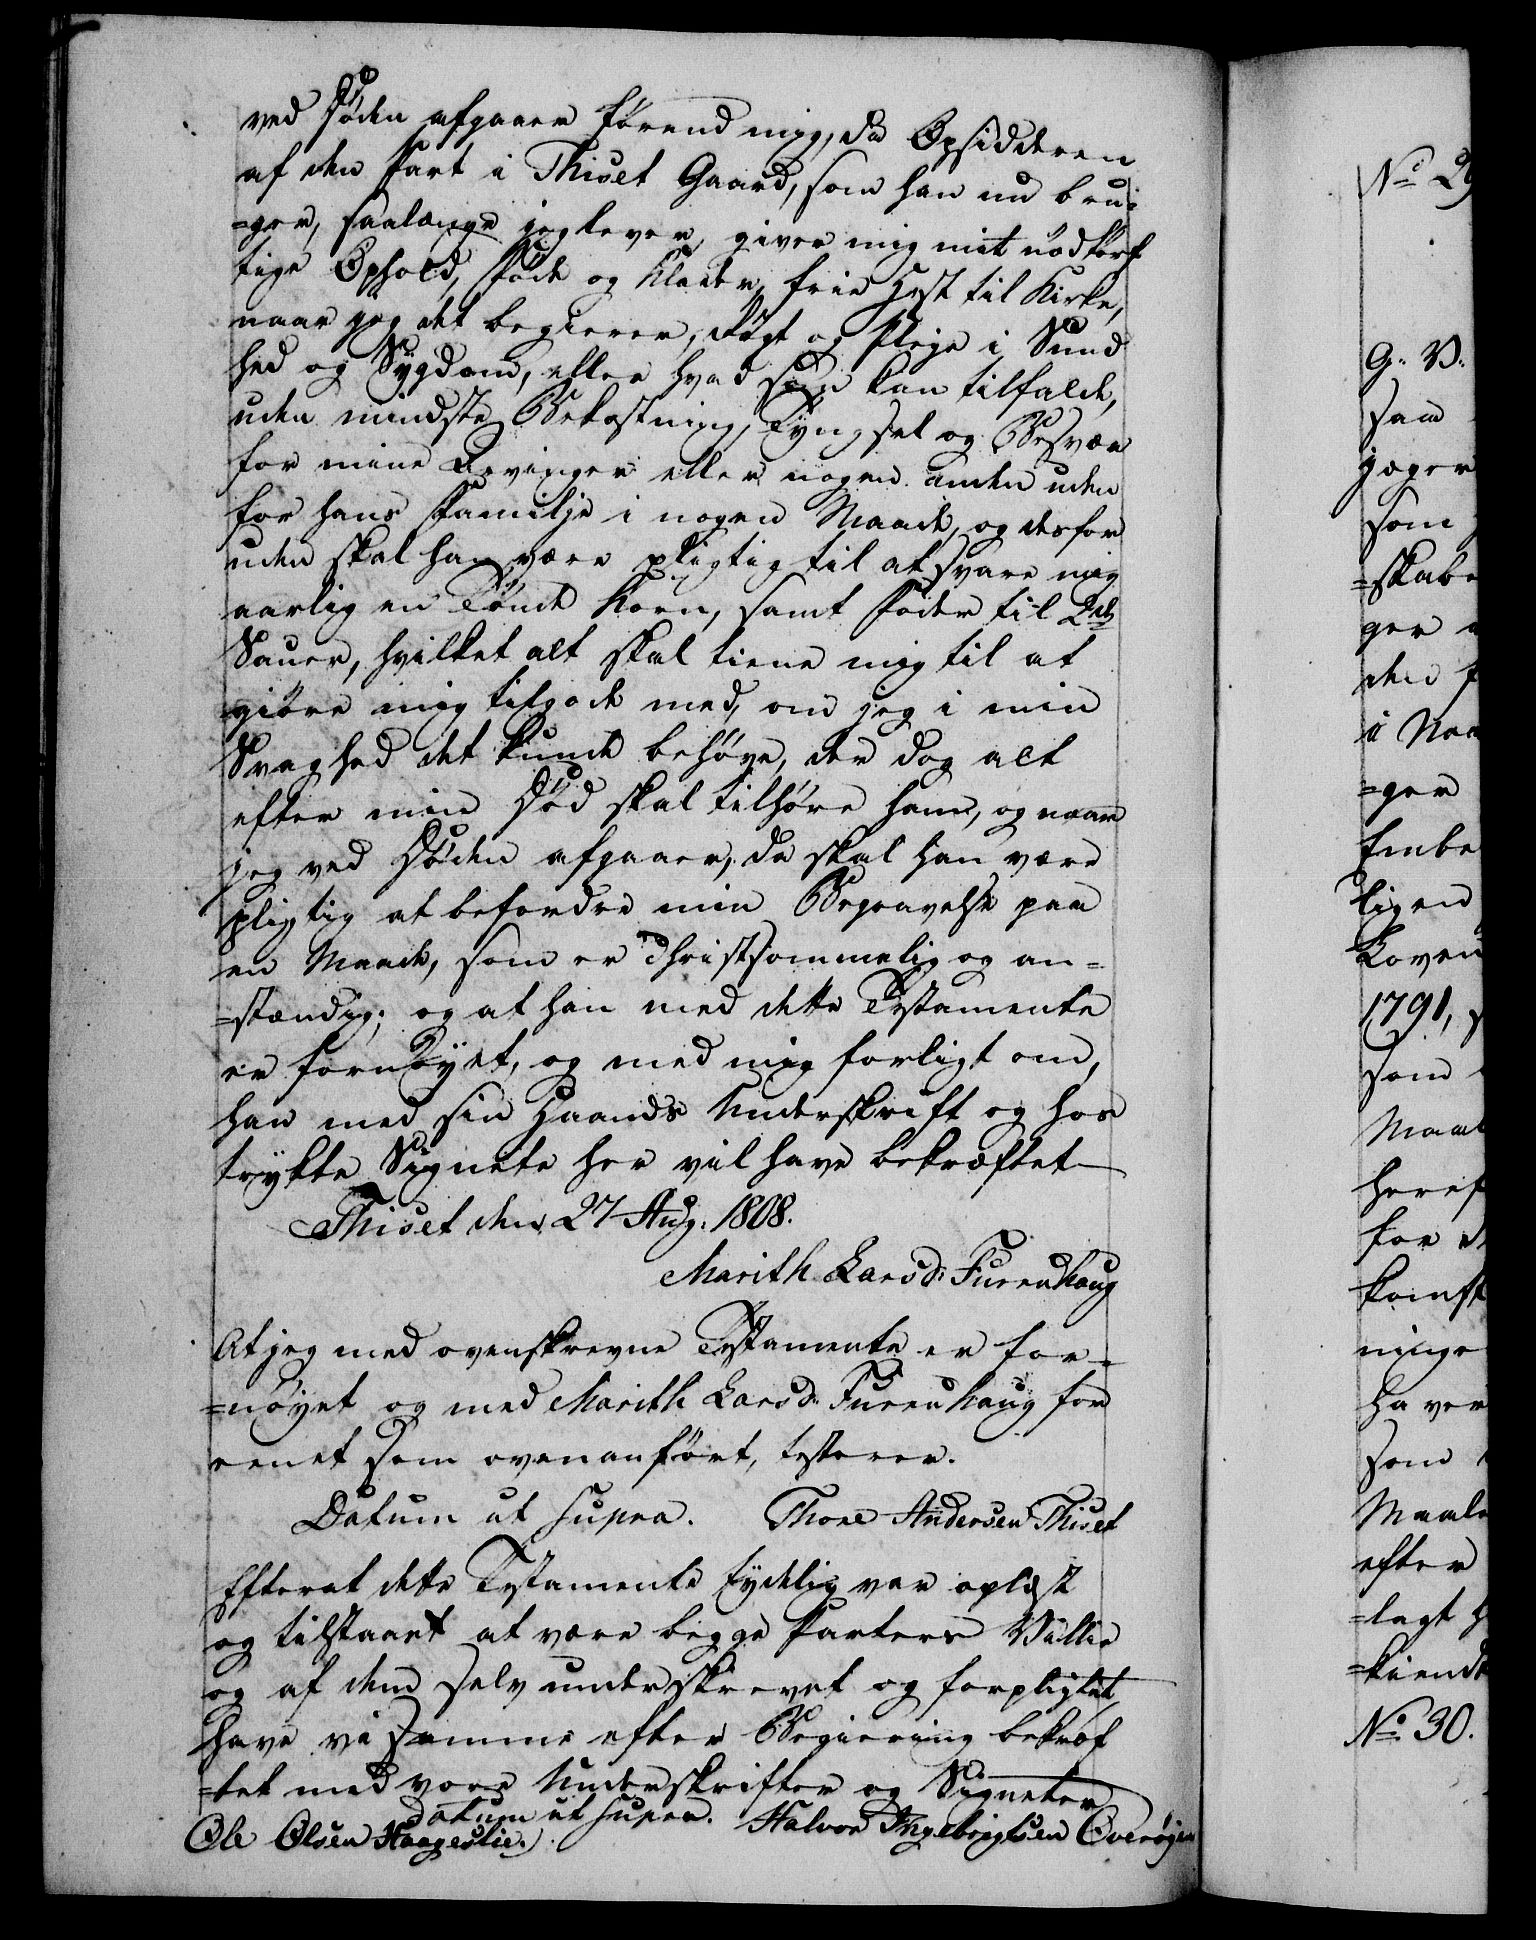 ved Døden afgaaer førend mig, da Opsidderen
af den Part i Thiset Gaard, som han nu bru-
=ger, saalænge jeg lever, giver mig mit nødtørf
tige Ophold, Føde og Klæder, frie Hest til Kirke,
naar jeg det begierer, Røgt og Pleje i Sund
hed og Sygdom, eller hvad som kan tilfalde,
uden mindste Bekostning, Tyngsel og Besvær
for mine Arvinger eller nogen anden uden
for hans Familje i nogen Maade, og desfor
uden skal han være pligtig til at svare mig
aarlig en Tønde Korn, samt Foder til 2de
Sauer, hvilket alt skal tiene mig til at
giøre mig tilgode med, om jeg i min
Svaghed det kunde behøve, der dog alt
efter min Død skal tilhøre ham, og naar
jeg ved Døden afgaaer, da skal han være
pligtig at befordre min Begravelse paa
en Maade, som er Christsømmelig og an=
=stændig; og at han med dette Testamente
er fornøyet, og med mig forligt om,
han med sin Haands Underskrift og hos
trykte Signete her vil have bekræftet
Thiset den 27 Aug. 1808.
Marith Larsd: Furruhaug
At jeg med ovenskrevne Testamente er for=
=nøyet og med Marith Larsd: Furruhaug for
eenet som ovenanført, testerer.
Datum ut supra. Thore Andersen Thiset
Efterat dette Testamente tydelig var oplæst
og tilstaaet at være begge Parters Villie
og af dem selv underskrevet og forpligtet,
have vi samme efter Begiering bekræf
=tet med vore Underskrifter og Signeter
Datum ut supra. Halvor Ingebrigtsen Overøyen
Ole Olsen Haageslie.
No 29
G. V.
saa
jæger
som
=skabe
ger
den
i Naa
=ger
Embe
ligen
Loven
1791,
som
Maal
heref
for
komst
ninge
haver
som
Maale
efter
=lagt
=kiendt
No 30.